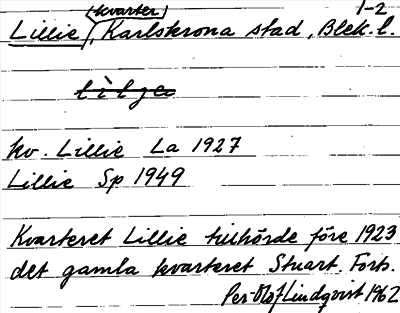 1-2
Lillie (kvarter), Karlskrona stad, Blek. l.
lilje
kv. Lillie La 1927
Lillie Sp 1949
Kvarteret Lillie tillhörde före 1923
det gamla kvarteret Stuart. Forts.
Per-Olof Lindqvist 1962